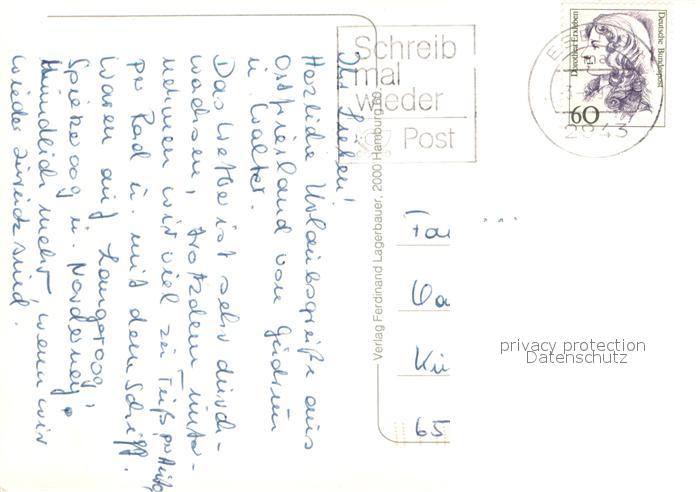 Ihr Lieben!
Herzliche Urlaubsgrüße aus
Ostfriesland von Gudrun
u. Walter.
Das Wetter ist sehr durch-
wachsen, trotzdem unter-
nehmen wir viel zu Fuß, per Auto,
per Rad u. mit dem Schiff.
Waren auf Langeoog,
Spiekeroog u. Norderney.
Mündlich mehr, wenn wir
wieder zurück sind.
Verlag Ferdinand Lagerbauer, 2000 Hamburg 60
Schreib
mal
wieder
Post
2943
Dorothea Erxleben
Deutsche Bundespost
60
Fa
Kü
65
privacy protection
Datenschutz